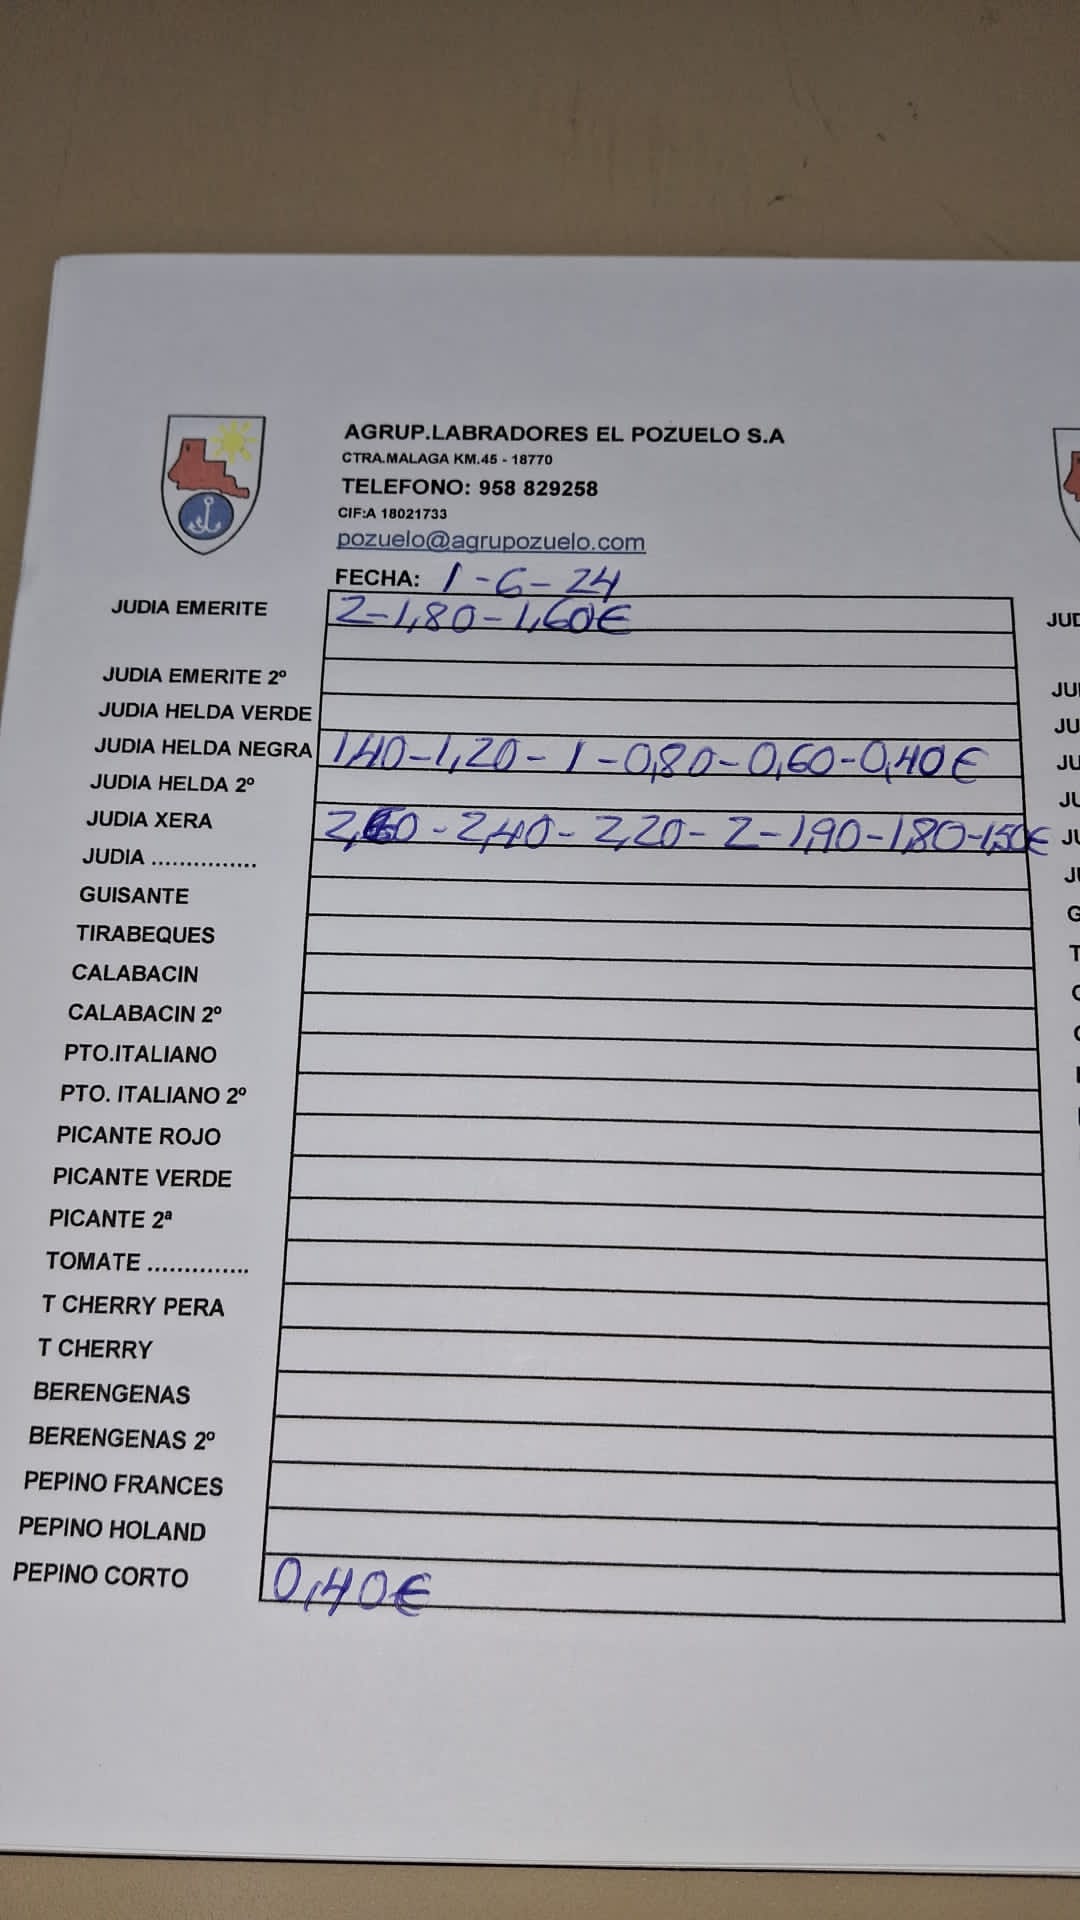 AGRUP.LABRADORES EL POZUELO S.A
CTRA.MALAGA KM.45 - 18770
TELEFONO: 958 829258
CIF:A 18021733
pozuelo@agrupozuelo.com
FECHA: 1-6-24
JUDIA EMERITE 2-1,80-1,60€
JUDIA EMERITE 2º
JUDIA HELDA VERDE
JUDIA HELDA NEGRA 1,40-1,20-1-0,80-0,60-0,40€
JUDIA HELDA 2º
JUDIA XERA 2,60-2,40-2,20-2-1,90-1,80-1,50€
JUDIA ...............
GUISANTE
TIRABEQUES
CALABACIN
CALABACIN 2º
PTO.ITALIANO
PTO. ITALIANO 2º
PICANTE ROJO
PICANTE VERDE
PICANTE 2ª
TOMATE ..............
T CHERRY PERA
T CHERRY
BERENGENAS
BERENGENAS 2º
PEPINO FRANCES
PEPINO HOLAND
PEPINO CORTO 0,40€